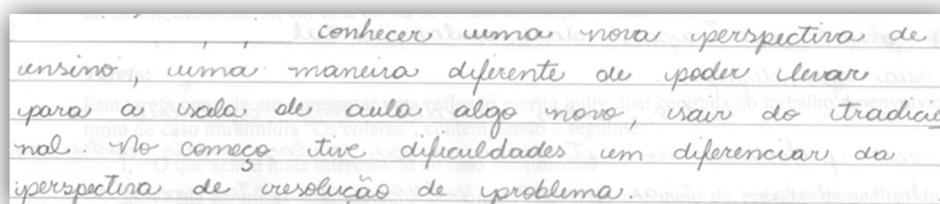 conhecer uma nova perspectiva de
ensino, uma maneira diferente de poder levar
para a sala de aula algo novo, sair do tradicio
nal. No começo tive dificuldades em diferenciar da
perspectiva de resolução de problema.